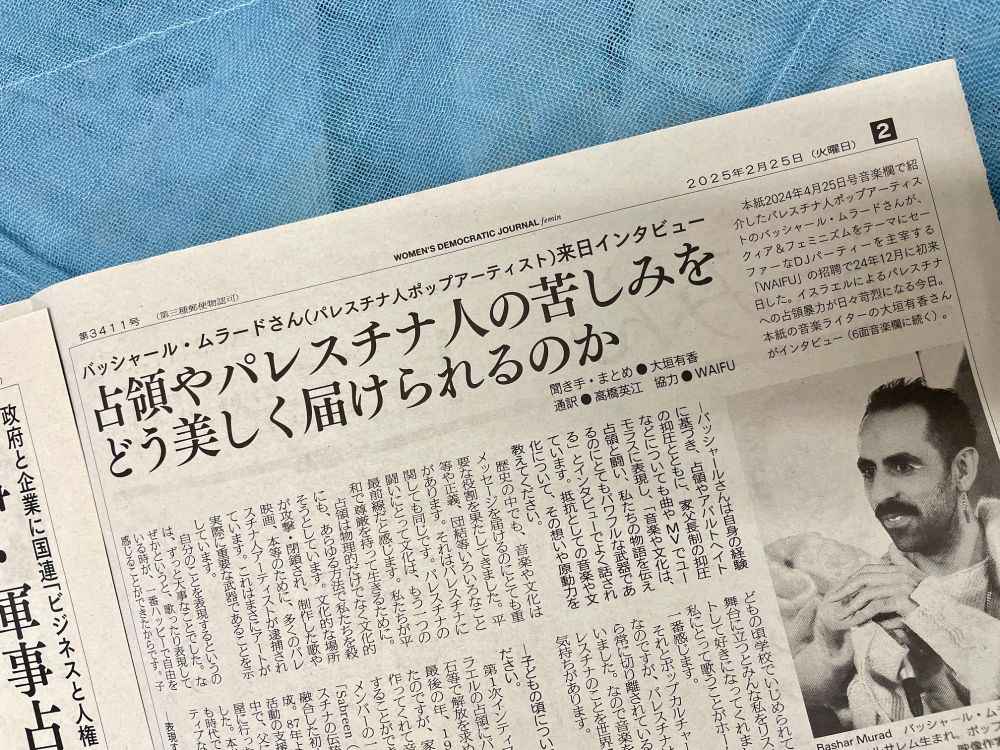 第3411号
（第三種郵便物認可）
WOMEN'S DEMOCRATIC JOURNAL femin
2025年2月25日（火曜日）
2
バッシャール・ムラードさん（パレスチナ人ポップアーティスト）来日インタビュー
占領やパレスチナ人の苦しみを
どう美しく届けられるのか
聞き手・まとめ●大垣有香
通訳●高橋英江　協力●WAIFU
本紙2024年4月25日号音楽欄で紹
介したパレスチナ人ポップアーティス
トのバッシャール・ムラードさんが、
クィア&フェミニズムをテーマにセー
ファーなDJパーティーを主宰する
「WAIFU」の招聘で24年12月に初来
日した。イスラエルによるパレスチナ
への占領暴力が日々苛烈になる今日。
本紙の音楽ライターの大垣有香さん
がインタビュー（6面音楽欄に続く）。
―バッシャールさんは自身の経験
に基づき、占領やアパルトヘイト
の抑圧とともに、家父長制の抑圧
などについても曲やMVでユー
モラスに表現し、「音楽や文化は、
占領と闘い、私たちの物語を伝え
るのにとてもパワフルな武器であ
る」とインタビューでよく話され
ています。抵抗としての音楽や文
化について、その想いや原動力を
教えてください。
歴史の中でも、音楽や文化は
メッセージを届けるのにとても重
要な役割を果たしてきました。平
等や正義、団結等いろいろなこと
があります。それはパレスチナに
関しても同じです。パレスチナの
闘いにとって文化は、もう一つの
最前線だと感じます。私たちが平
和で尊厳を持って生きるために。
占領は物理的だけでなく文化的
にも、あらゆる方法で私たちを殺
そうとしています。文化的な場所
が攻撃・閉鎖され、制作した歌や
映画、本等のために、多くのパレ
スチナ人アーティストが逮捕され
ています。これはまさにアートが
実際に重要な武器であることを示
しています。
自分のことを表現するというの
は、ずっと大事なことでした。な
ぜかというと、歌ったり表現して
いる時が、一番ハッピーで自由を
感じることができたからです。子
どもの頃学校でいじめられて
舞台に立つとみんな私をリス
トして好きになってくれまし
私にとって歌うことがホーム
一番感じます。
それとポップカルチャー
なのですが、パレスチナ
ら常に切り離されている
いました。なので音楽を
レスチナのことを世界
気持ちがあります。
―子どもの頃につい
ださい。
第1次インティフ
ラエルの占領にパ
石等で解放を求
最後の年、家
たのですが、
作ってくれて
することがで
メンバーの一
政府と企業に国連「ビジネスと人権
軍事占
Bashar Murad　バッシャール・ム